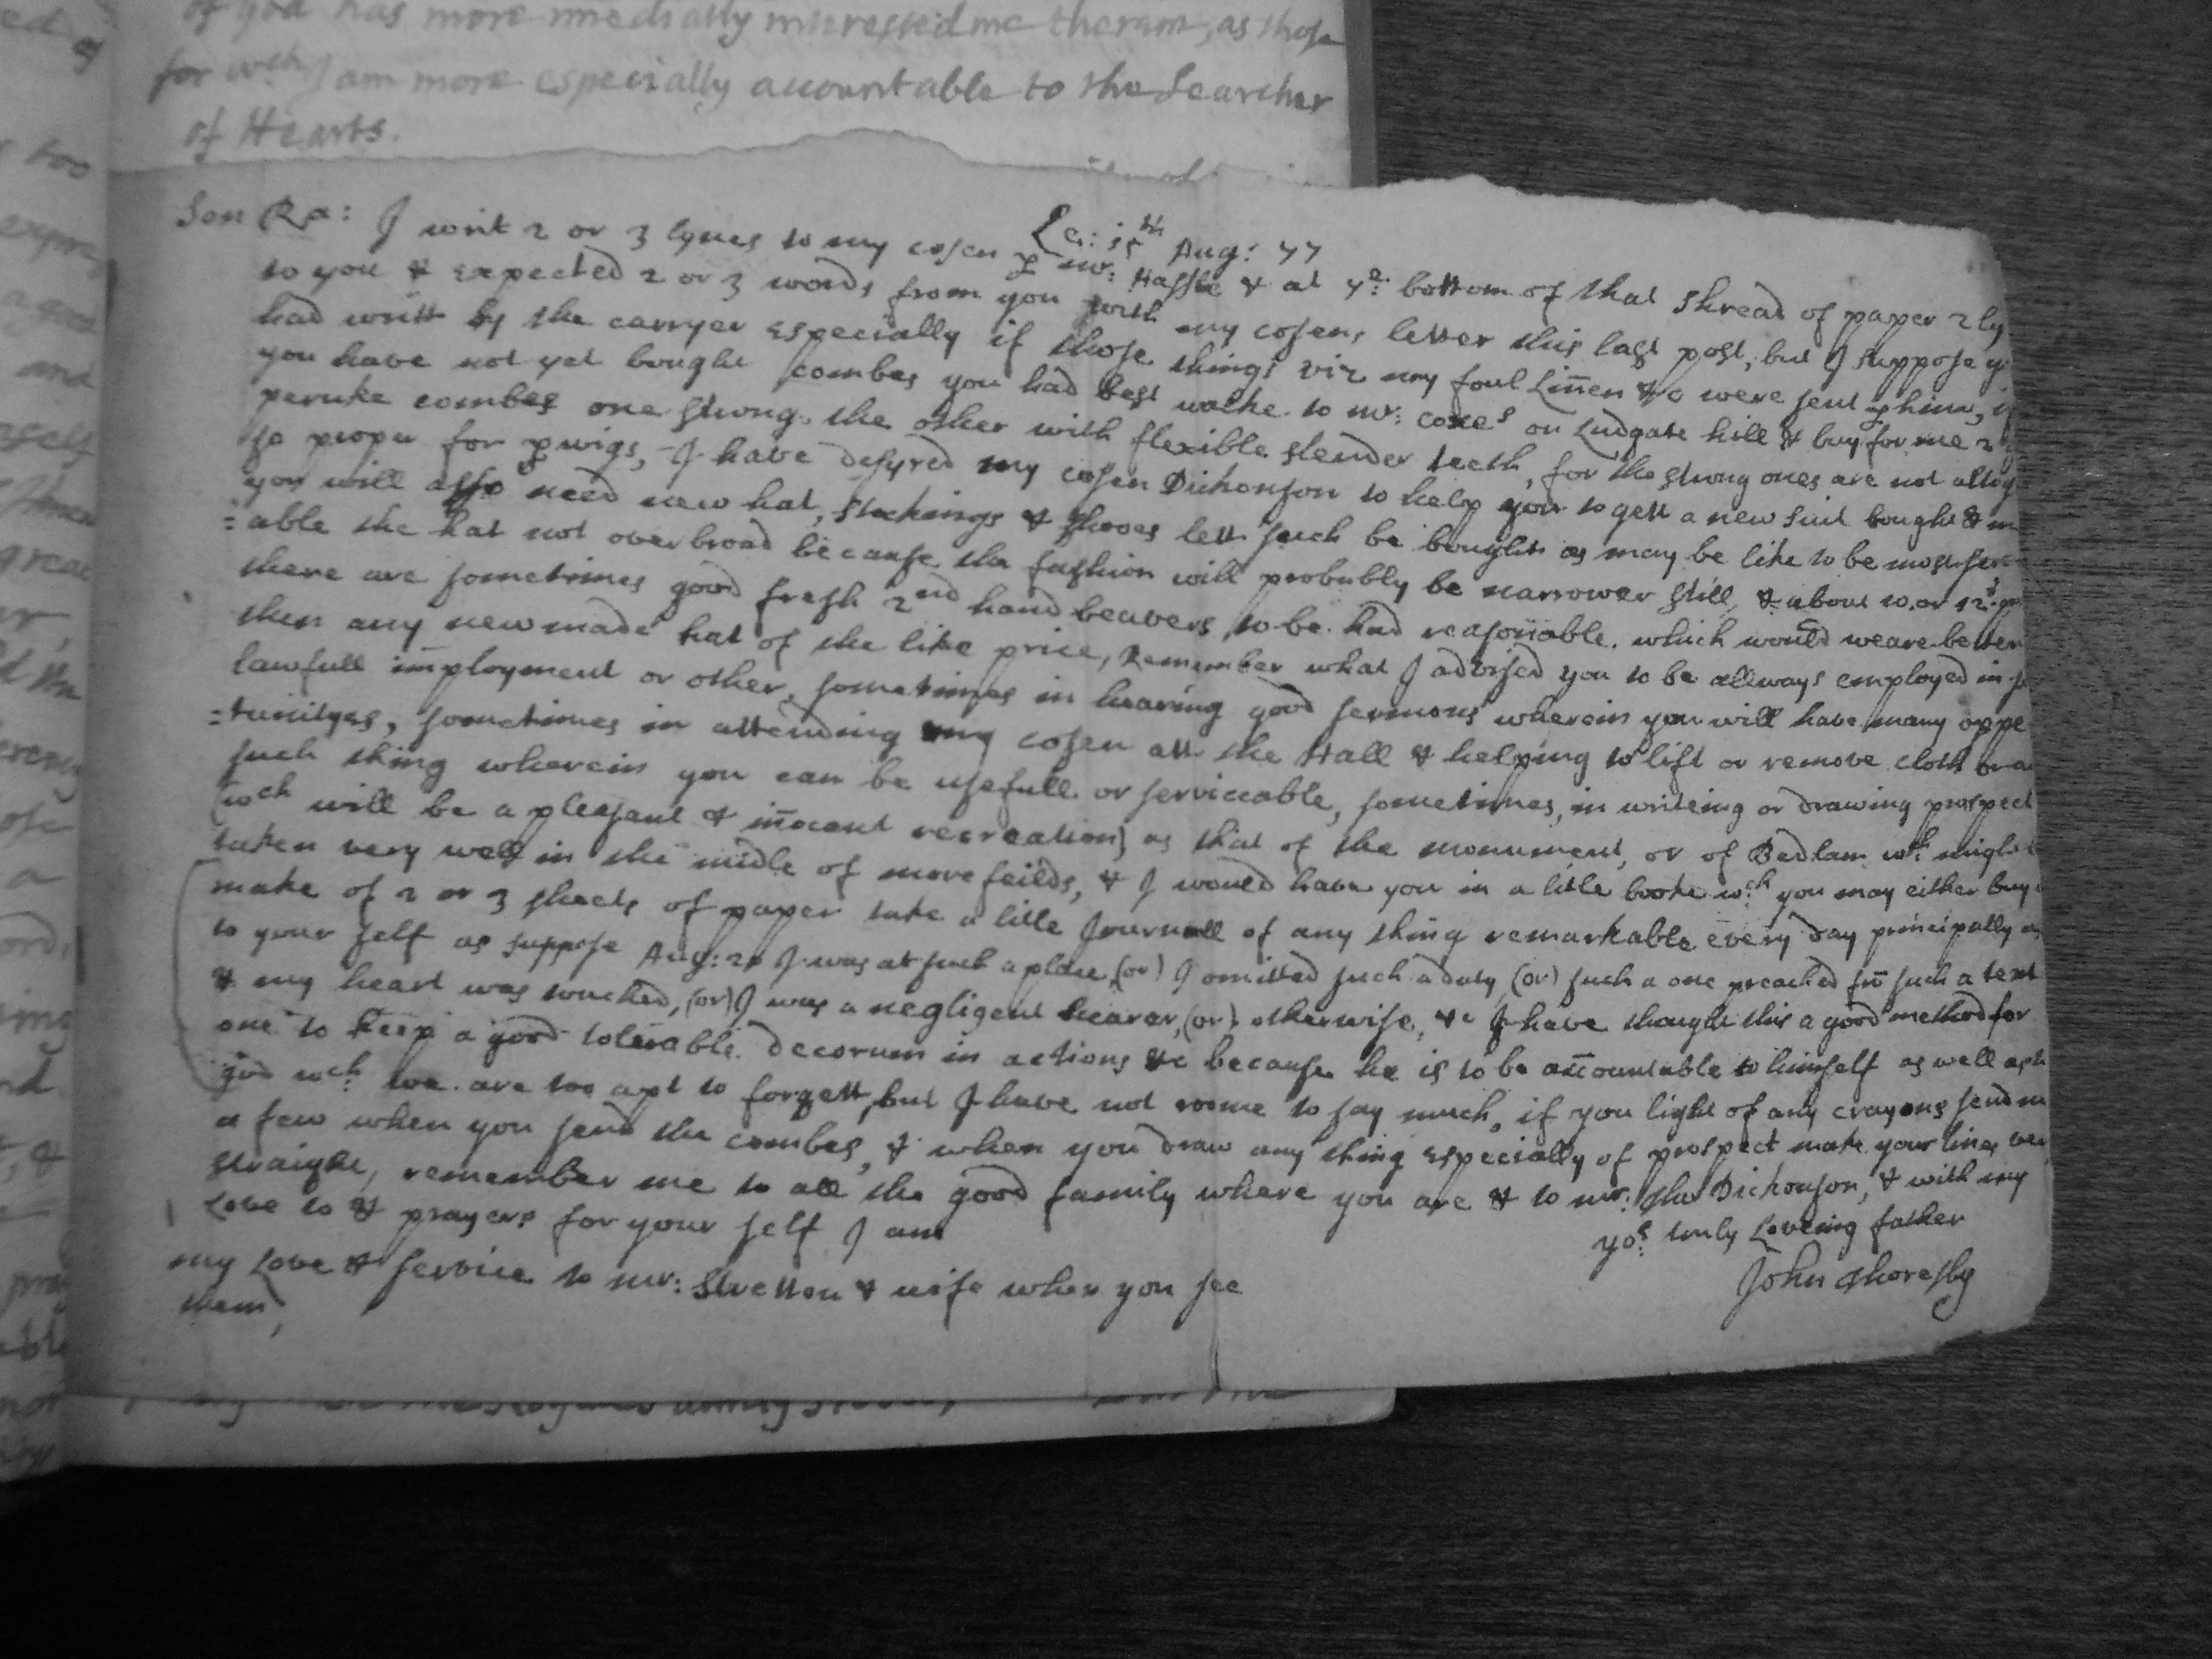 of god has more imediatly interessed me therein, as those
for wch I am more especially accountable to the Searcher
of Hearts.
Le: 15th Aug: 77
Son Ra: I writ 2 or 3 lynes to my cosen p mr: & at ye bottom of that shread of paper 2 ly
to you & expected 2 or 3 words from you with my cosens letter this last post, but I suppose y
had writt by the carryer especially if those things viz my foul Linnen &c were sent p him, if
you have not yet bought combes you had best walke to mr: Coxes on Ludgate hill & buy for me 2
peruke combes one strong, the other with flexible slender teeth, for the strong ones are not altog
so proper for pwigs, I have desyred my cosen Dickonson to help you to gett a new suit bought & m
you will also need new hat, stockings & shooes lett such be bought as may be like to be most ser
=able the hat not over broad because the fashion will probably be narrower still, & about 10 or 12s
there are sometimes good fresh 2nd hand beavers to be had reasonable which would weare better
then any new made hat of the like price, Remember what I advised you to be allways employed in so
lawfull imployment or other, sometimes in hearing good sermons wherein you will have many oppe
=tunityes, sometimes in attending my cosen att the Hall & helping to lift or remove cloth or a
such thing wherein you can be usefull or serviceable, sometimes, in writeing or drawing prospect
(wch will be a pleasent & inocent recreation) as that of the monument, or of Bedlam wch might
taken very well in the midle of morefeilds, & I would have you in a litle booke wch you may either buy
make of 2 or 3 sheets of paper take a litle Journall of any thing remarkable every day principally as
to your self as suppose Aug: 20 I was at such a place, (or) I omitted such a duty (or) such a one preached fro such a text
& my heart was touched, (or) I was a negligent hearer, (or) otherwise, &c I have thought this a good method for
one to keep a good tolerable decorum in actions &c because he is to be accountable to himself as well as to
god wch we are too apt to forgett, but I have not roome to say much, if you light of any crayons send m
a few when you send the combes, & when you draw any thing especially of prospect make your lines ver
straight, remember me to all the good family where you are & to mr: Tho Dickonson, & with my
Love to & prayers for your self I am
yor truly Loveing father
John Thoresby
my Love & service to mr: Stretton & wife when you see
them,